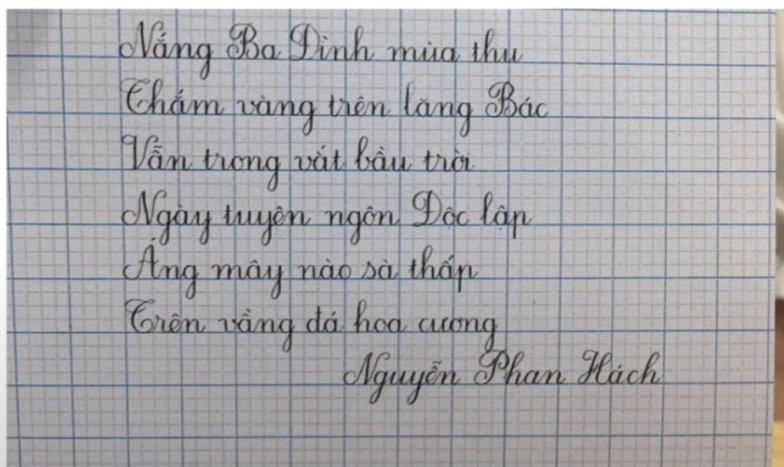 Nắng Ba Đình mùa thu
Thắm vàng trên lăng Bác
Vẫn trong vắt bầu trời
Ngày tuyên ngôn Độc lập
Áng mây nào sà thấp
Trên vầng đá hoa cương
Nguyễn Phan Hách